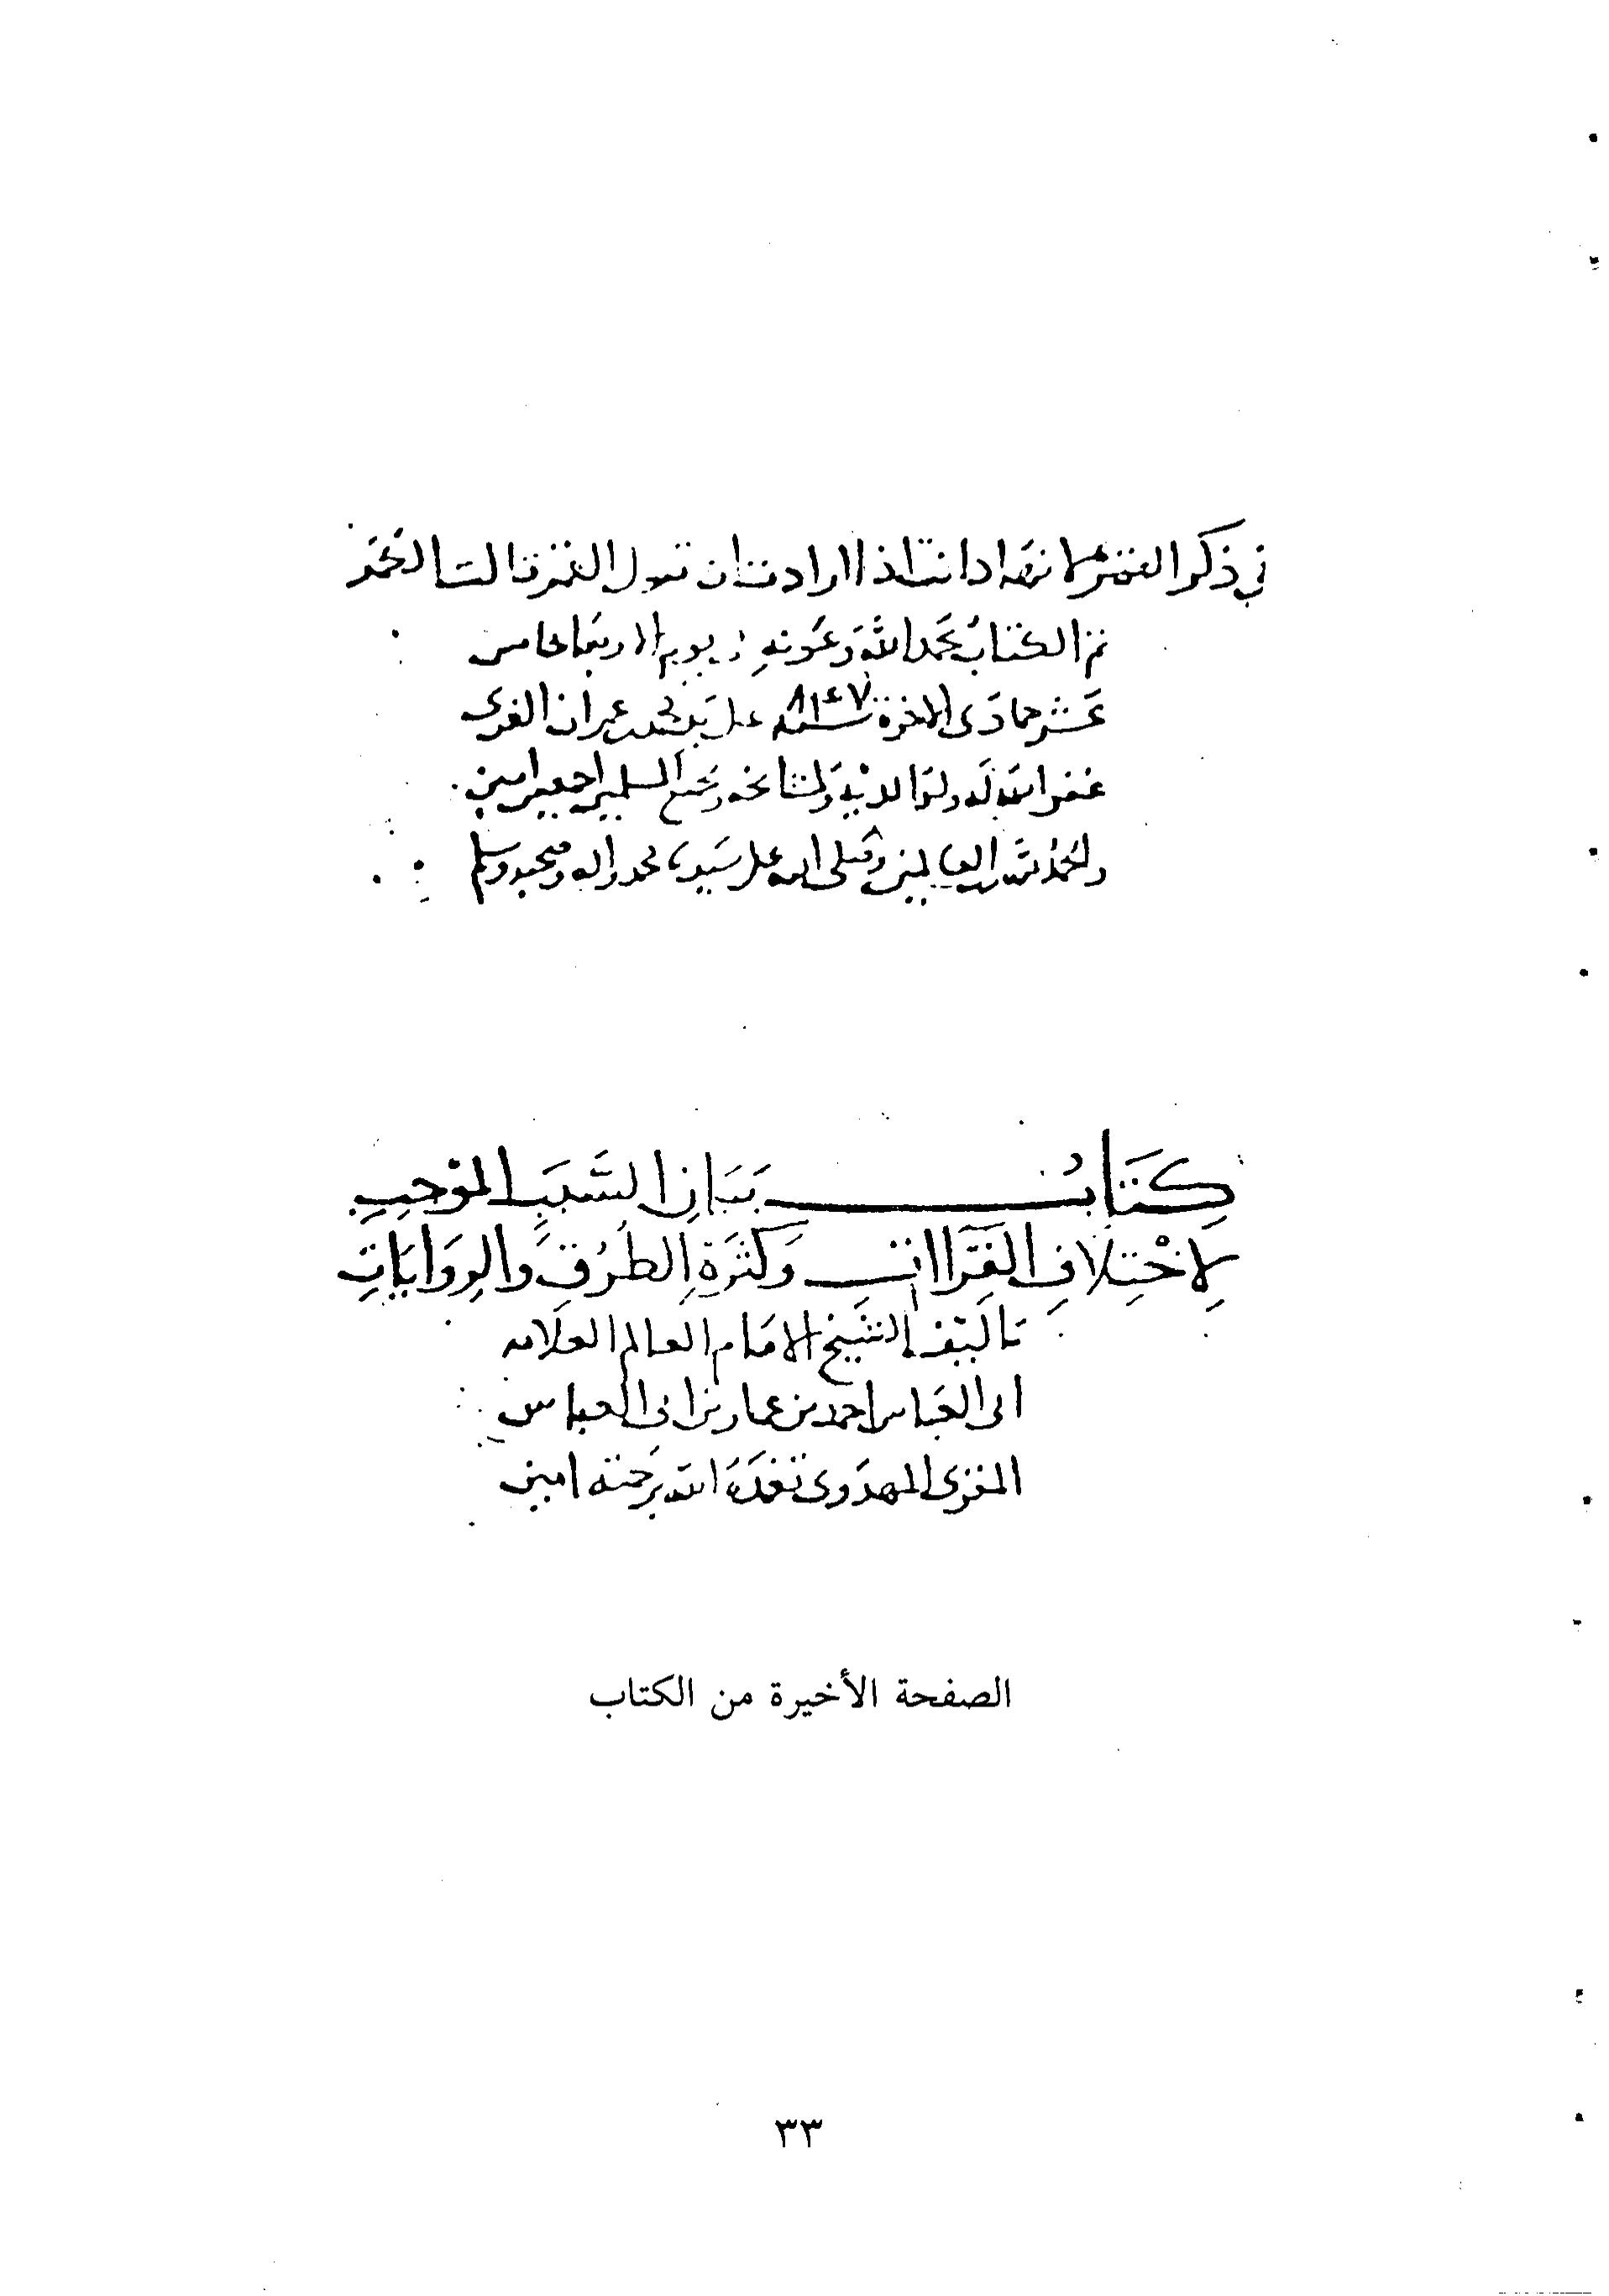 في ذكر القمر لانه اذا انت اذا ارادت ان تقول القمر قالت
تم الكتاب بحمد الله وعونه يوم الاربعا خامس
عشر جمادى الاخرة سنة ٨٤٧ على يد عمران الغزي
غفر الله له ولوالديه ولمشايخه ولجميع المسلمين اجمعين امين
والحمد لله رب العالمين وصلى الله على سيدنا محمد واله وصحبه وسلم
كِتَابُ بَيَانِ السَّبَبِ الموْجِبِ
لاخْتِلافِ القِرَاات وَكَثرَةِ الطُرُقِ وَالرِوَايَاتِ
تاليف الشيخ الامَام العالم العلامه
ابى العَباس احمد بن عمار بن ابى العباس
المقرى المهدَوى تغمدَهُ الله برَحمته امين
الصفحة الأخيرة من الكتاب
٣٣